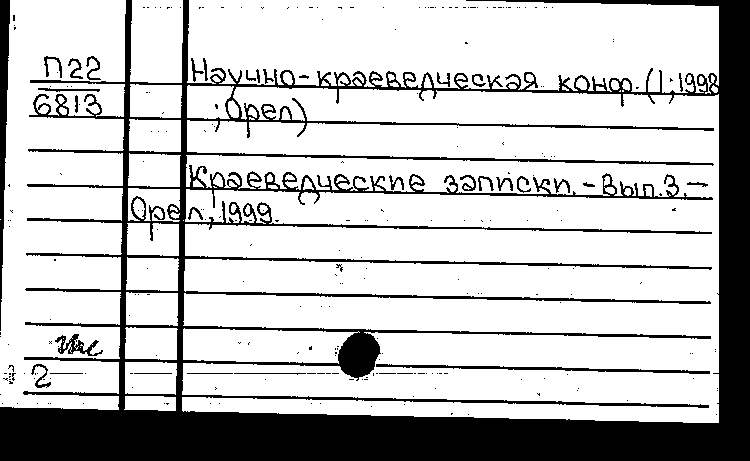 П22
6813
Научно-краеведческая конф. (1; 1998
; Орел)
Краеведческие записки. - Вып. 3. -
Орел, 1999.
2